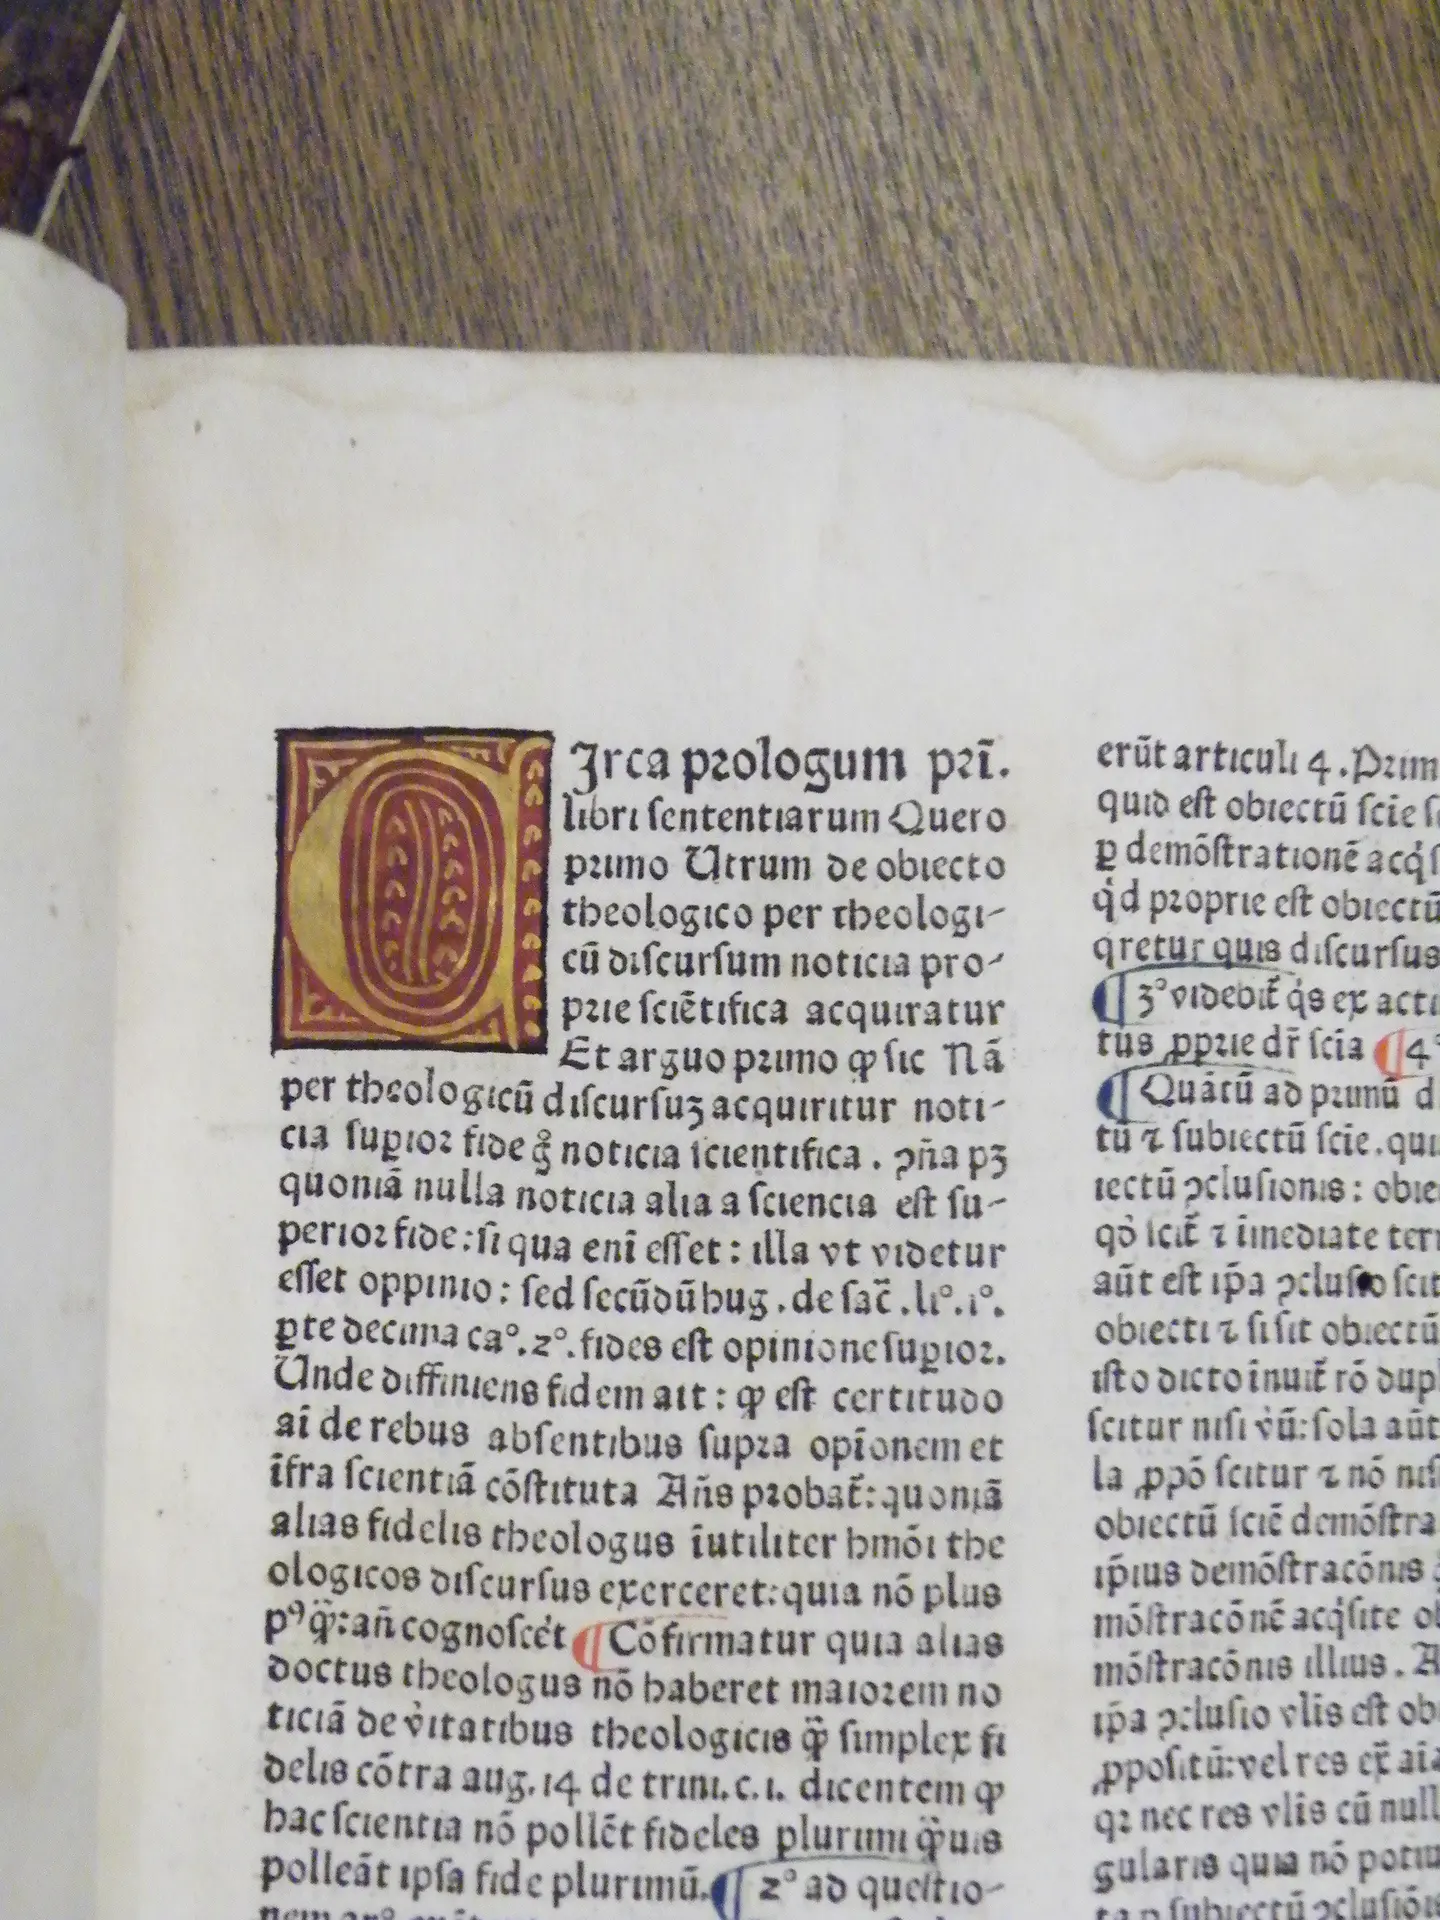 CIrca prologum pri̅.
libri ſententiarum Quero
primo Utrum de obiecto
theologico per theologi-
cū diſcurſum noticia pro-
prie ſciētifica acquiratur
Et arguo primo ꝙ ſic Nā
per theologicū diſcurſuꝫ acquiritur noti-
cia ſuꝑior fide gͦ noticia ſcientifica . ꝯña pꝫ
quoniā nulla noticia alia a ſciencia eſt ſu-
perior fide: ſi qua eni̅ eſſet : illa vt videtur
eſſet oppinio : ſed ſecūdū hug . de ſac̄ . liº . iº.
ꝑte decima caº. 2º. fides eſt opinione ſuꝑior.
Unde diffiniens fidem ait : ꝙ eſt certitudo
ai̅ de rebus abſentibus ſupra opi̅onem et
i̅fra ſcientiā cōſtituta Añs probat̄: quoniā
alias fidelis theologus i̅utiliter hmōi the
ologicos diſcurſus exerceret: quia nō plus
pꝰ ꝙ̈: añ cognoſcēt ¶ Cōfirmatur quia alias
doctus theologus nō haberet maiorem no
ticiā de v̓itatibus theologicis ꝙ̈ ſimplex fi
delis cōtra aug. 14 de trini. c. i. dicentem ꝙ
hac ſcientia nō pollēt fideles plurimi ꝙ̈uis
polleāt ipſa fide plurimū. ¶ 2º ad queſtio-
erūt articuli 4 . Prim
quid eſt obiectū ſcie ſ
ꝑ demōſtrationē acq̇ſ
q̇d proprie eſt obiectū
qretur quis diſcurſus
¶ 3º videbit̄ q̇s ex acti
tus ꝓprie dr̄ ſcia ¶ 4º
¶ Quātū ad primū d
tū ⁊ ſubiectū ſcie . qui
iectū ꝯcluſionis : obie
qȯ ſcit̄ ⁊ i̅mediate ter
aūt eſt ip̄a ꝯcluſio ſcit
obiecti ⁊ ſi ſit obiectū
iſto dicto inuit̄ rō dupl
ſcitur niſi v̓ū: ſola aūt
la ꝓpō ſcitur ⁊ nō niſ
obiectū ſciē demōſtra
ip̄ius demōſtracōnis
mōſtracōnē acq̇ſite ob
mōſtracōnis illius . A
ip̄a ꝯcluſio vlis eſt ob
ꝓpoſitū: vel res ex̄ aīa
qꝛ nec res vlis cū null
gularis quia nō potiu